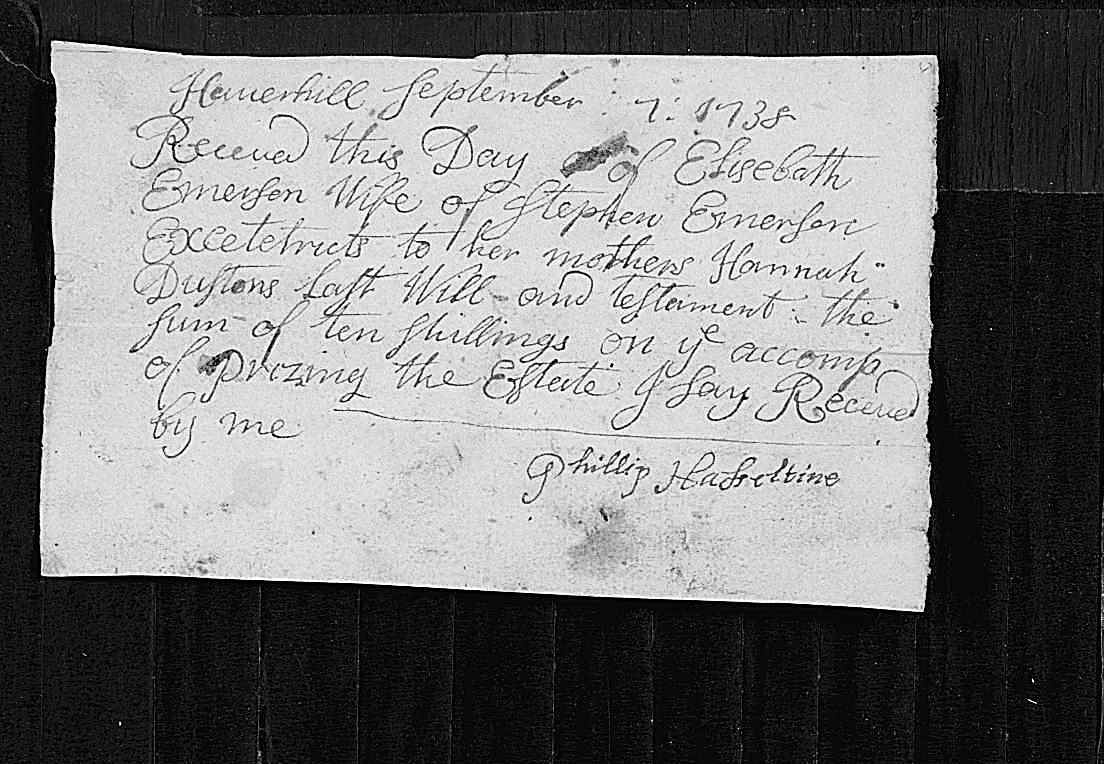 Hauerhill September : 7 : 1738
Receued this Day of Elisebath
Emerson Wife of Stephen Emerson
Excetetricts to her mothers Hannah
Dustons Last Will and testament : the
sum of ten shillings on ye accomp
of prizing the Estate I say Receued
by me
Phillip Hasseltine